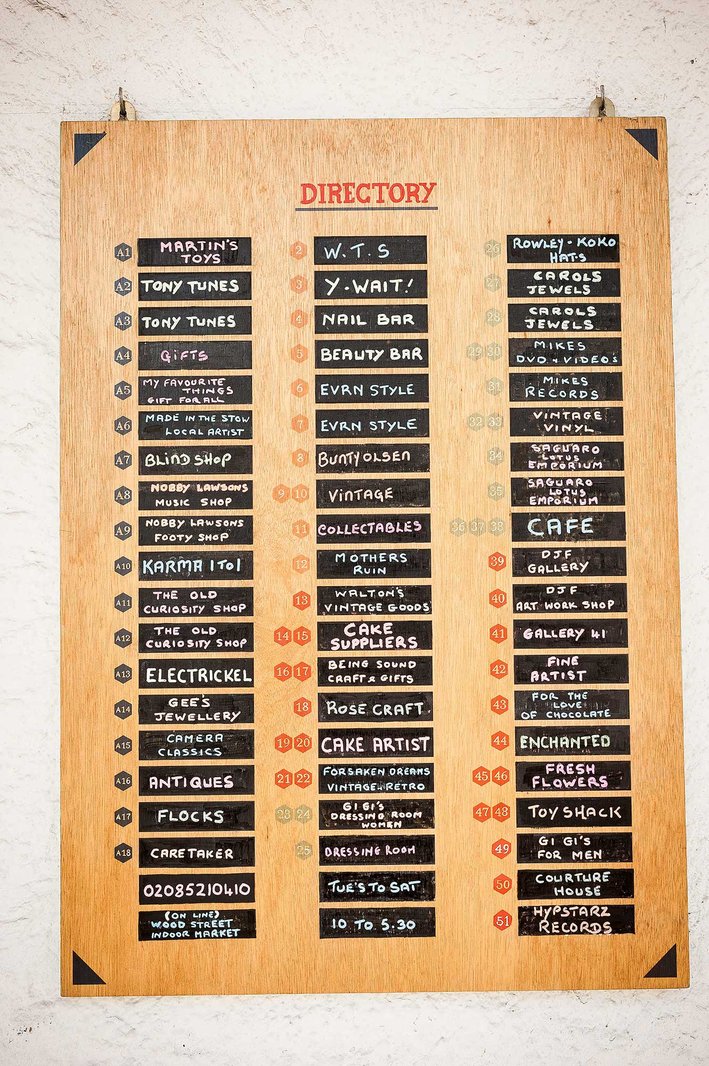 DIRECTORY
A1 MARTIN'S
TOYS
A2 TONY TUNES
A3 TONY TUNES
A4 GIFTS
A5 MY FAVOURITE
THINGS
GIFT FOR ALL
A6 MADE IN THE STOW
LOCAL ARTIST
A7 BLIND SHOP
A8 NOBBY LAWSONS
MUSIC SHOP
A9 NOBBY LAWSONS
FOOTY SHOP
A10 KARMA 1 TO 1
A11 THE OLD
CURIOSITY SHOP
A12 THE OLD
CURIOSITY SHOP
A13 ELECTRICKEL
A14 GEE'S
JEWELLERY
A15 CAMERA
CLASSICS
A16 ANTIQUES
A17 FLOCKS
A18 CARETAKER
02085210410
(ON LINE)
WOOD STREET
INDOOR MARKET
2 W.T.S
3 Y-WAIT!
4 NAIL BAR
5 BEAUTY BAR
6 EVRN STYLE
7 EVRN STYLE
8 BUNTY OLSEN
9 10 VINTAGE
11 COLLECTABLES
12 MOTHERS
RUIN
13 WALTON'S
VINTAGE GOODS
14 15 CAKE
SUPPLIERS
16 17 BEING SOUND
CRAFT & GIFTS
18 ROSE CRAFT.
19 20 CAKE ARTIST
21 22 FORSAKEN DREAMS
VINTAGE. RETRO
23 24 GIGI'S
DRESSING ROOM
WOMEN
25 DRESSING ROOM
TUE'S TO SAT
10 TO 5.30
26 ROWLEY-KOKO
HATS
27 CAROLS
JEWELS
28 CAROLS
JEWELS
29 30 MIKES
DVD & VIDEO'S
31 MIKES
RECORDS
32 33 VINTAGE
VINYL
34 SAGUARO
LOTUS
EMPORIUM
35 SAGUARO
LOTUS
EMPORIUM
36 37 38 CAFE
39 DJF
GALLERY
40 DJF
ART WORK SHOP
41 GALLERY 41
42 FINE
ARTIST
43 FOR THE
LOVE
OF CHOCOLATE
44 ENCHANTED
45 46 FRESH
FLOWERS
47 48 TOY SHACK
49 GI GI'S
FOR MEN
50 COURTURE
HOUSE
51 HYPSTARZ
RECORDS